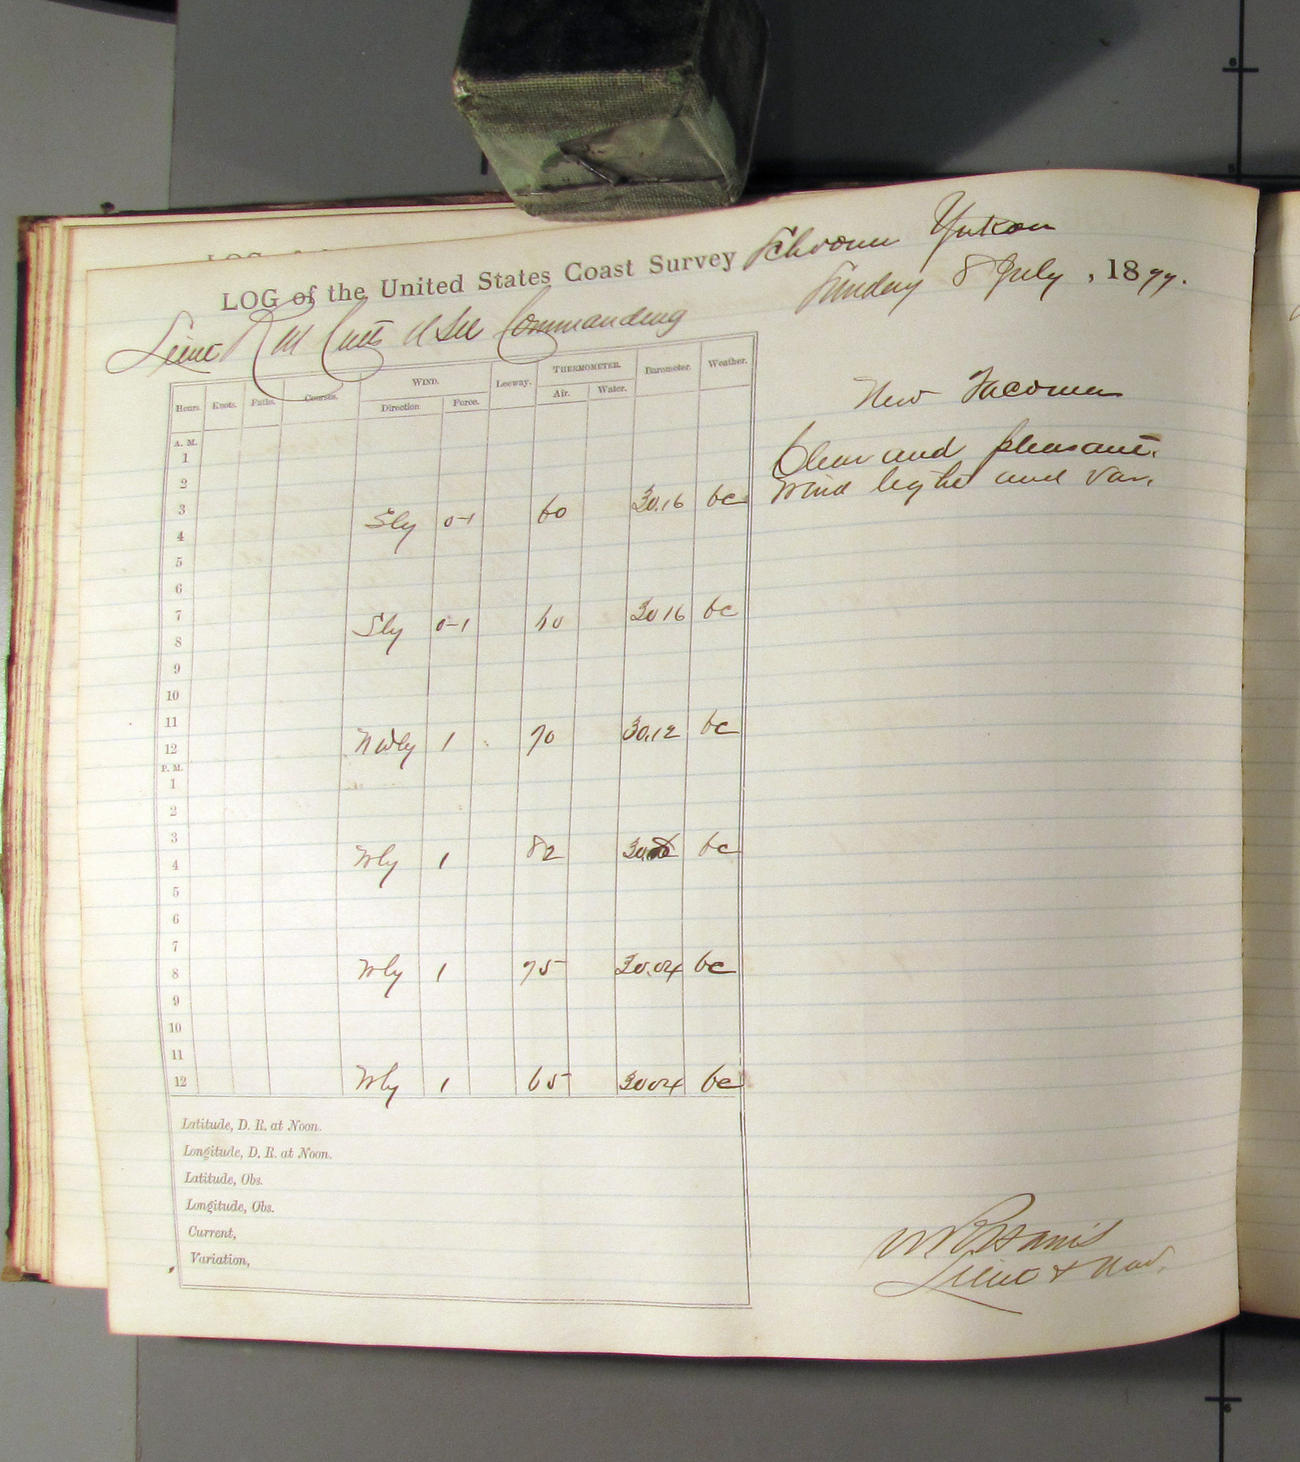 LOG of the United States Coast Survey Schooner Yukon
Sunday 8 July, 1877.
Lieut R M Cutts USN Commanding
Hours. Knots. Faths. Courses. WIND. Leeway. THERMOMETER. Barometer. Weather.
Direction Force. Air. Water.
A. M.
1
2
3
4 Sly 0-1 60 30.16 bc
5
6
7
8 Sly 0-1 60 30 16 bc
9
10
11
12 NWly 1 70 30.12 bc
P. M.
1
2
3
4 Wly 1 82 bc
5
6
7
8 Wly 1 75 30.04 bc
9
10
11
12 Wly 1 65 30 04 bc
Latitude, D. R. at Noon.
Longitude, D. R. at Noon.
Latitude, Obs.
Longitude, Obs.
Current,
Variation,
New Tacoma
Clear and pleasant.
Wind light and var.
Lieut & Nav.